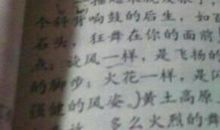 个斜背响鼓的后生，如
石头，狂舞在你的面前
点；旋风一样，是飞扬的
的脚步；火花一样，是
强健的风姿。）黄土高原
多么火烈的舞